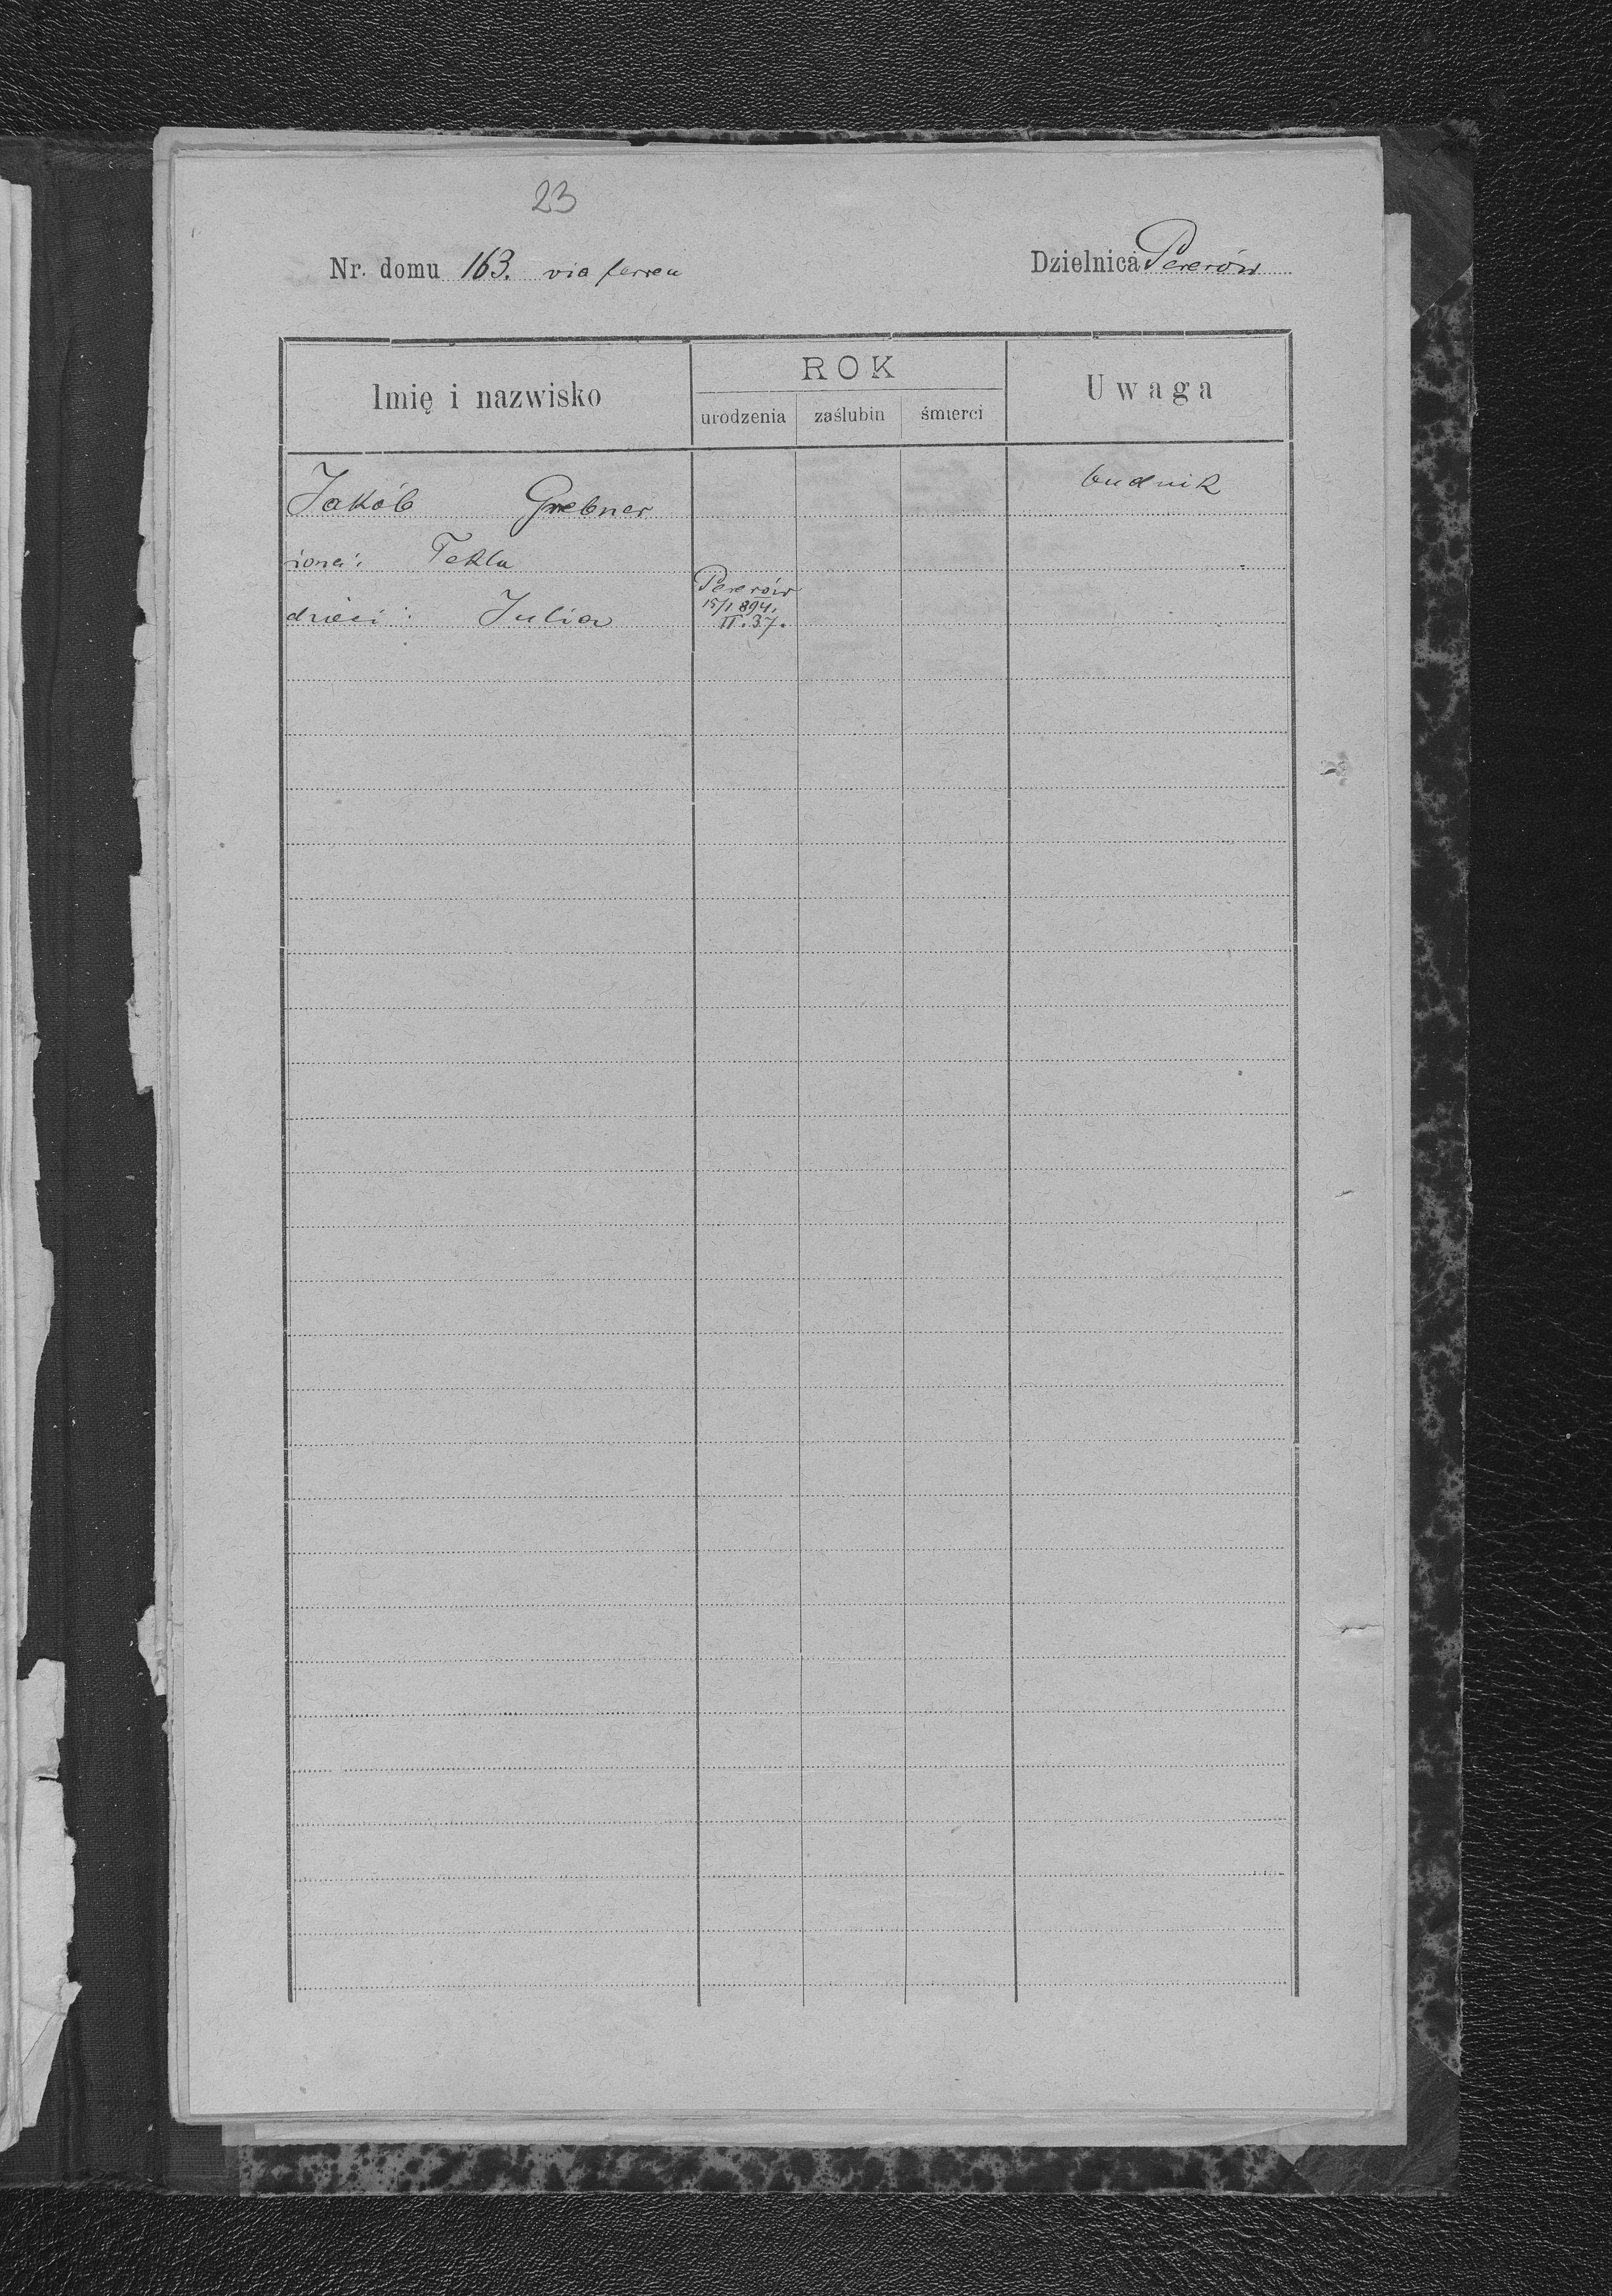 23
Nr. domu 163. via ferrea Dzielnica Pererów
Imię i nazwisko ROK Uwaga
urodzenia zaślubin śmierci
Jakób Grebner budnik
żona: Tekla
Pererów
dzieci: Julia 15/1 894.
II. 37.